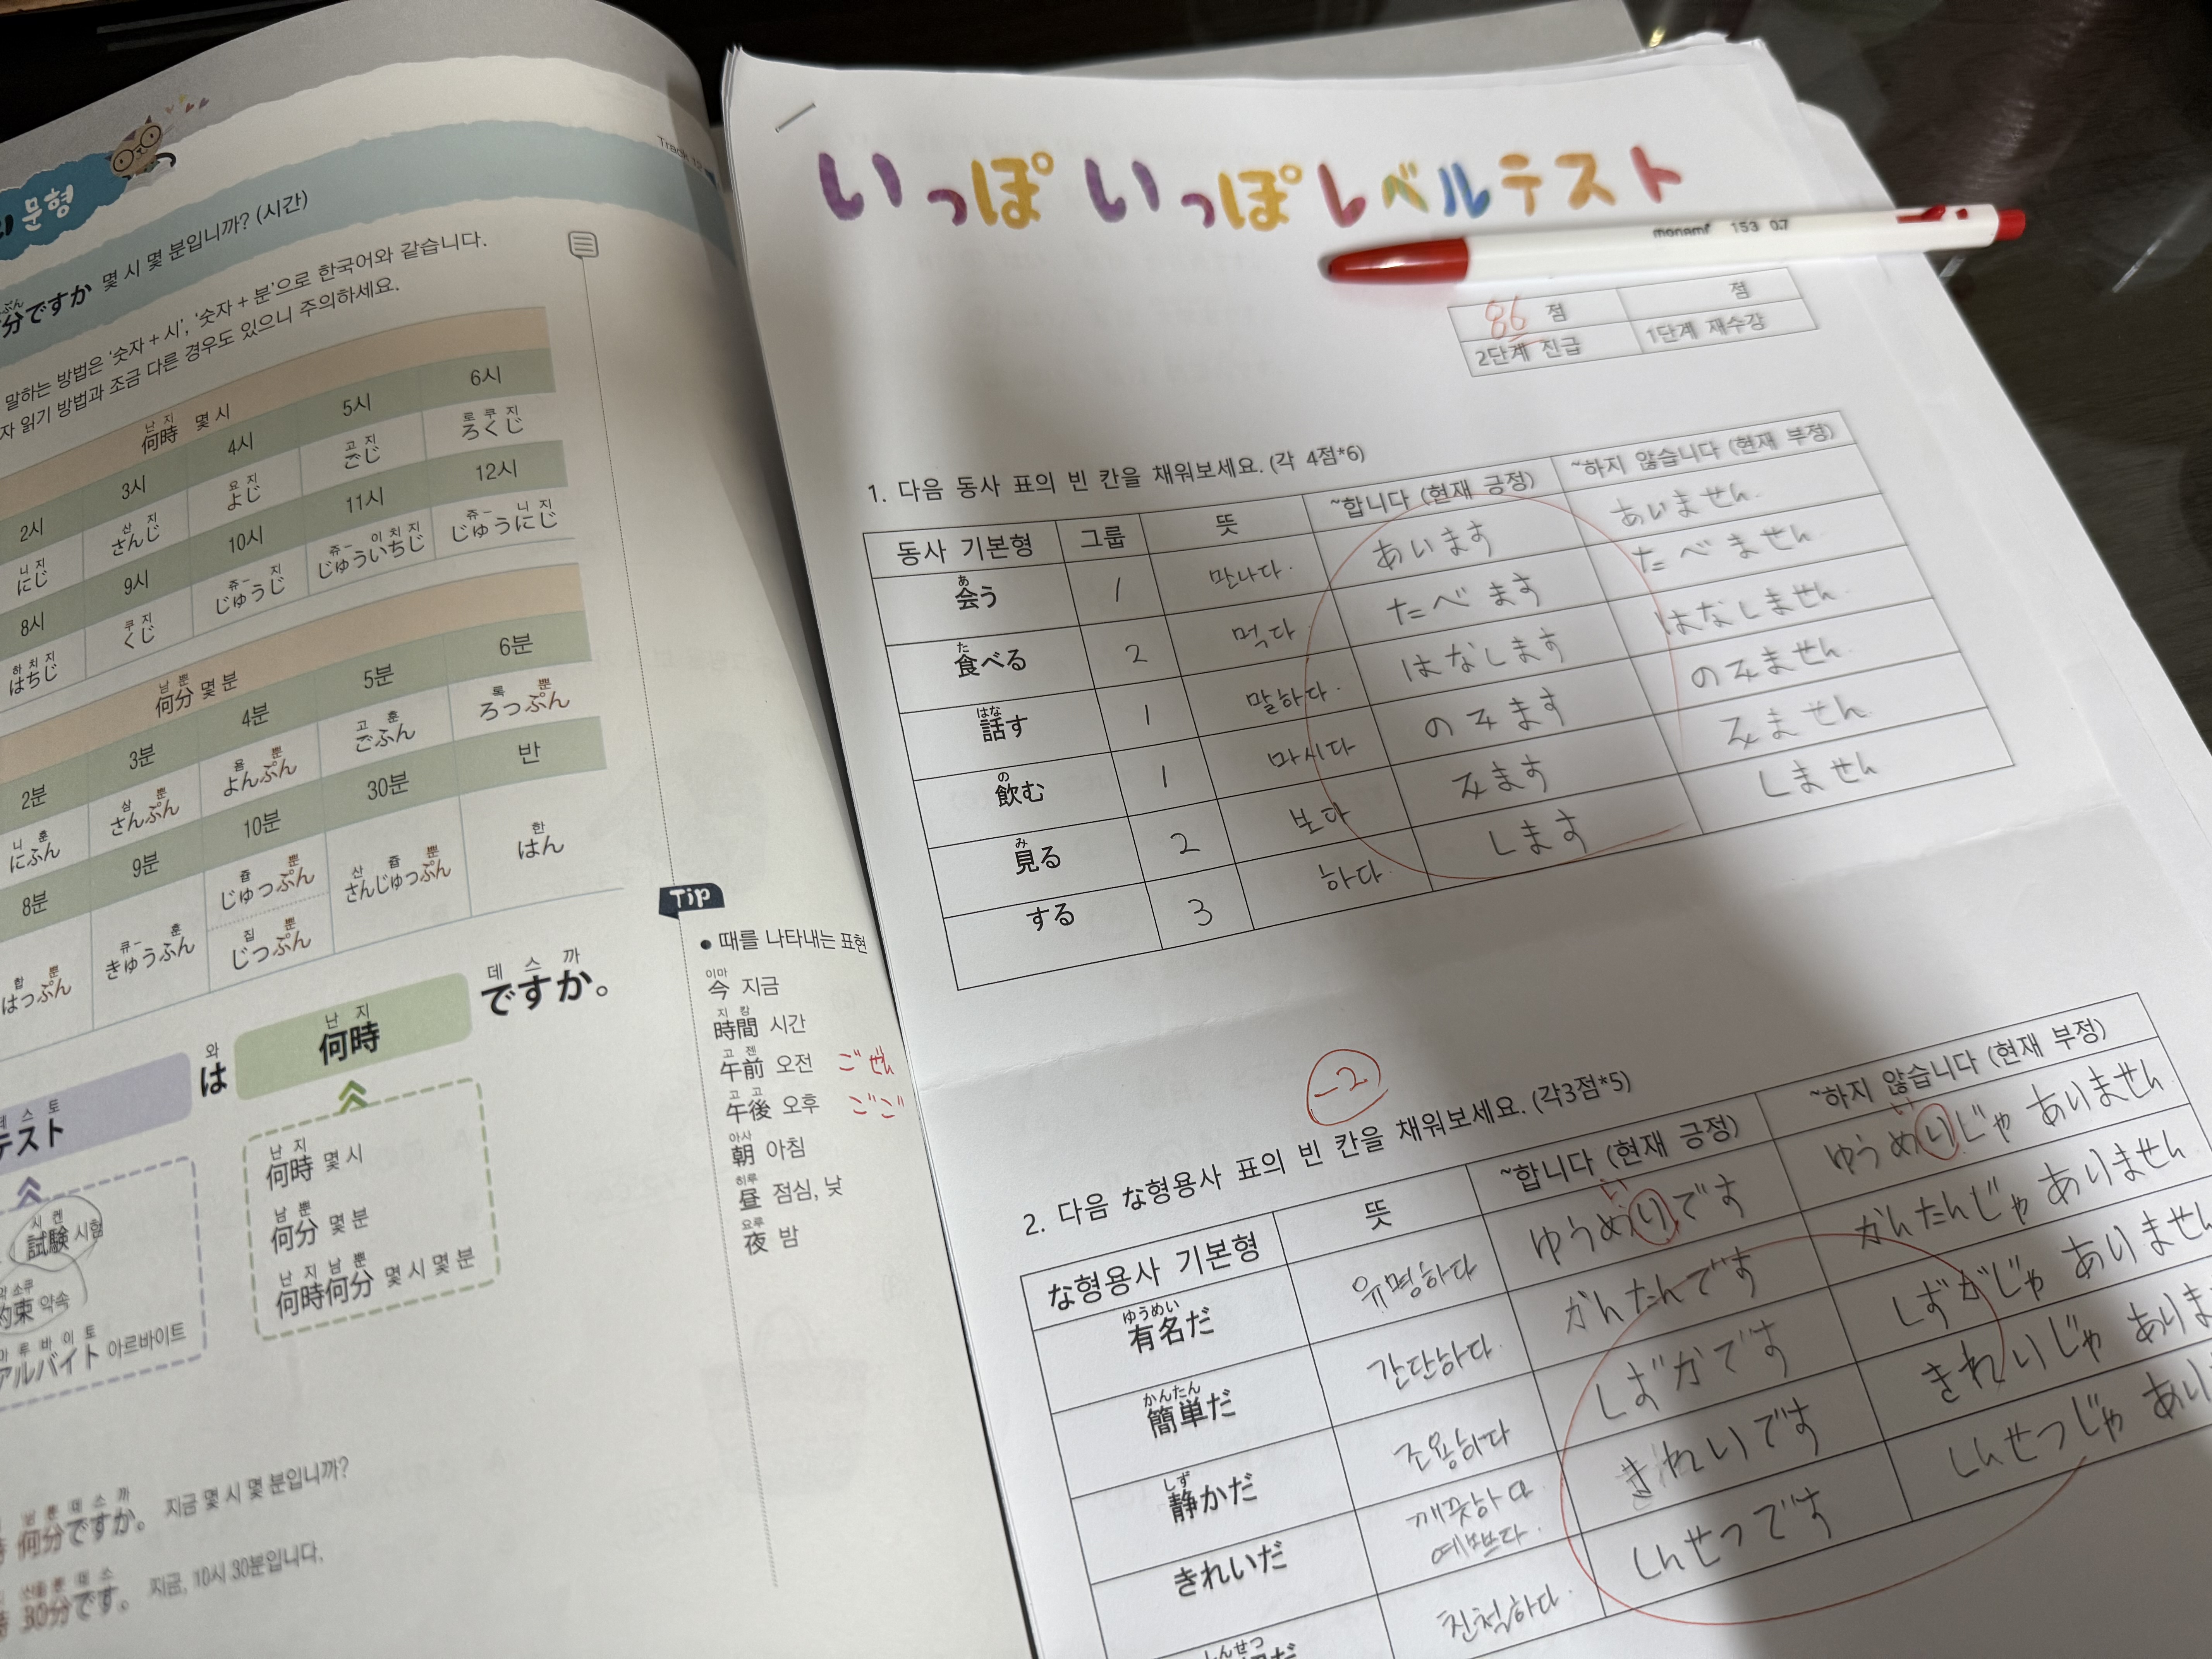 문형
Track
分ですか 몇 시 몇 분입니까? (시간)
ぷん
말하는 방법은 '숫자 + 시', '숫자 + 분'으로 한국어와 같습니다.
읽기 방법과 조금 다른 경우도 있으니 주의하세요.
난 지
何時 몇 시
2시 3시 4시 5시 6시
니 지 산 지 요 지 고 지 로 쿠 지
にじ さんじ よじ ごじ ろくじ
8시 9시 10시 11시 12시
하 치 지 쿠 지 쥬- 지 쥬- 이 치 지 쥬- 니 지
はちじ くじ じゅうじ じゅういちじ じゅうにじ
남 뿐
何分 몇 분
2분 3분 4분 5분 6분
니 훈 삼 뿐 욤 뿐 고 훈 록 뿐
にふん さんぷん よんぷん ごふん ろっぷん
8분 9분 10분 30분 반
합 뿐 큐- 훈 쥽 뿐 산 쥽 뿐 한
はっぷん きゅうふん じゅっぷん さんじゅっぷん はん
집 뿐
じっぷん
테 스 토 와 난 지 데 스 까
テスト は 何時 ですか。
시 켄
試験 시험
소쿠
約束 약속
아 루 바 이 토
アルバイト 아르바이트
난 지
何時 몇 시
남 뿐
何分 몇 분
난 지 남 뿐
何時何分 몇 시 몇 분
남 뿐 데 스 까
何分ですか。 지금 몇 시 몇 분입니까?
30分です。 지금, 10시 30분입니다.
Tip
● 때를 나타내는 표현
이마
今 지금
지 캉
時間 시간
고 젠
午前 오전 ごぜん
고 고
午後 오후 ごご
아사
朝 아침
히루
昼 점심, 낮
요루
夜 밤
いっぽ いっぽ レベルテスト
monami 153 0.7
86 점 점
2단계 진급 1단계 재수강
1. 다음 동사 표의 빈 칸을 채워보세요. (각 4점*6)
동사 기본형 그룹 뜻 ~합니다 (현재 긍정) ~하지 않습니다 (현재 부정)
あ
会う 1 만나다. あいます あいません.
た
食べる 2 먹다 たべます たべません
はな
話す 1 말하다. はなします はなしません.
の
飲む 1 마시다 のみます のみません.
み
見る 2 보다 みます みません
する 3 하다. します しません
-2
2. 다음 な형용사 표의 빈 칸을 채워보세요. (각3점*5)
な형용사 기본형 뜻 ~합니다 (현재 긍정) ~하지 않습니다 (현재 부정)
い い
ゆうめい
有名だ 유명하다 ゆうめりです ゆうめりじゃ ありません
かんたん
簡単だ 간단하다. かんたんです かんたんじゃ ありません
しず
静かだ 조용하다 しずかです しずかじゃ ありません
きれいだ 깨끗하다 예쁘다. きれいです きれいじゃ ありま
しんせつ
だ 친절하다. しんせつです しんせつじゃ あり